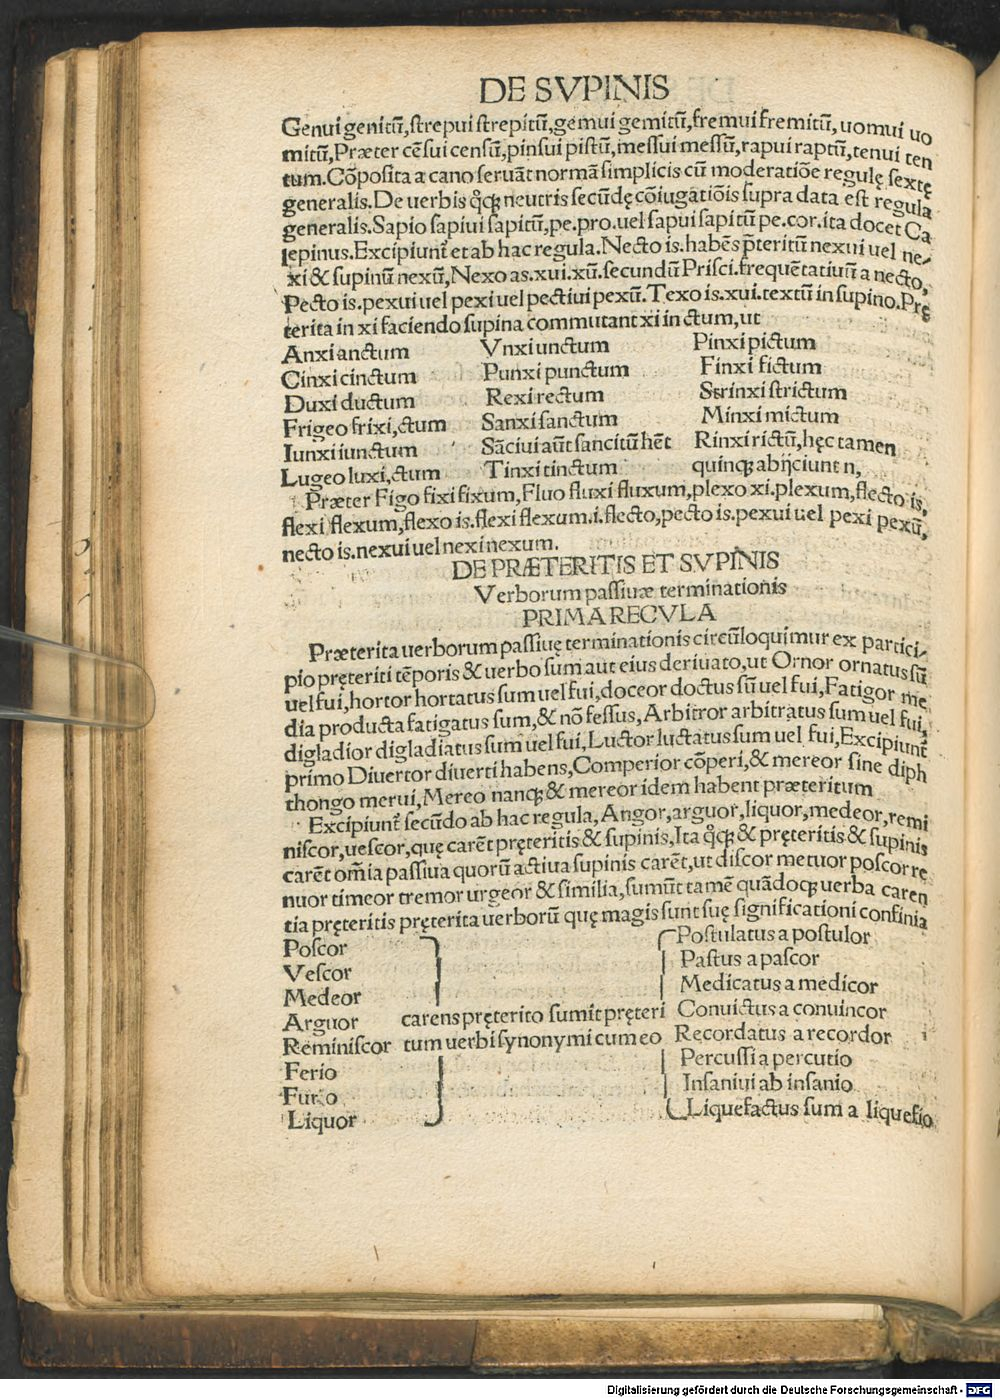 DE SVPINIS
Genui genitū, strepui strepitū, gemui gemitū, fremui fremitū, uomui uo
mitū, Præter cēsui censū, pinsui pistū, messui messū, rapui raptū, tenui ten
tum. Cōposita a cano seruāt normā simplicis cū moderatiōe regulę sextę
generalis. De uerbis q̊q; neutris secūdę cōiugatiōis supra data est regula
generalis. Sapio sapiui sapitū, pe. pro. uel sapui sapitū pe. cor. ita docet Ca
lepinus. Excipiunt̃ et ab hac regula. Necto is. habēs p̄teritū nexui uel ne-
xi & supinū nexū, Nexo as. xui. xū. secundū Prisci. frequētatiuū a necto,
Pecto is. pexui uel pexi uel pectiui pexū. Texo is. xui. textū in supino. Prę
terita in xi faciendo supina commutant xi in ctum, ut
Anxi anctum Vnxi unctum Pinxi pictum
Cinxi cinctum Punxi punctum Finxi fictum
Duxi ductum Rexi rectum Strinxi strictum
Frigeo frixi, ctum Sanxi sanctum Minxi mictum
Iunxi iunctum Sāciui aūt sancitū hēt Rinxi rictū, hęc tamen
Lugeo luxi, ctum Tinxi tinctum quinq; abijciunt n,
Præter Figo fixi fixum, Fluo fluxi fluxum, plexo xi. plexum, flecto is,
flexi flexum, flexo is. flexi flexum. i. flecto, pecto is. pexui uel pexi pexū,
necto is. nexui uel nexi nexum.
DE PRÆTERITIS ET SVPINIS
Verborum passiuæ terminationis
PRIMA RECVLA
Præterita uerborum passiuę terminationis circūloquimur ex partici-
pio pręteriti tēporis & uerbo sum aut eius deriuato, ut Ornor ornatus sū
uel fui, hortor hortatus sum uel fui, doceor doctus sū uel fui, Fatigor me
dia producta fatigatus sum, & nō fessus, Arbitror arbitratus sum uel fui,
digladior digladiatus sum uel fui, Luctor luctatus sum uel fui, Excipiunt̃
primo Diuertor diuerti habens, Comperior cōperi, & mereor sine diph
thongo merui, Mereo nanq; & mereor idem habent præteritum
Excipiunt̃ secūdo ab hac regula, Angor, arguor, liquor, medeor, remi
niscor, uescor, quę carēt pręteritis & supinis, Ita q̊q; & pręteritis & supinis
carēt om̄ia passiua quorū actiua supinis carēt, ut discor metuor poscor re
nuor timeor tremor urgeor & similia, sumūt tamē quādoq; uerba caren
tia pręteritis pręterita uerborū quę magis sunt suę significationi confinia
Poscor Postulatus a postulor
Vescor Pastus a pascor
Medeor Medicatus a medicor
Arguor carens pręterito sumit pręteri Conuictus a conuincor
Reminiscor tum uerbi synonymi cum eo Recordatus a recordor
Ferio Percussi a percutio
Furo Insaniui ab insanio
Liquor Liquefactus sum a liquefio
Digitalisierung gefördert durch die Deutsche Forschungsgemeinschaft - DFG